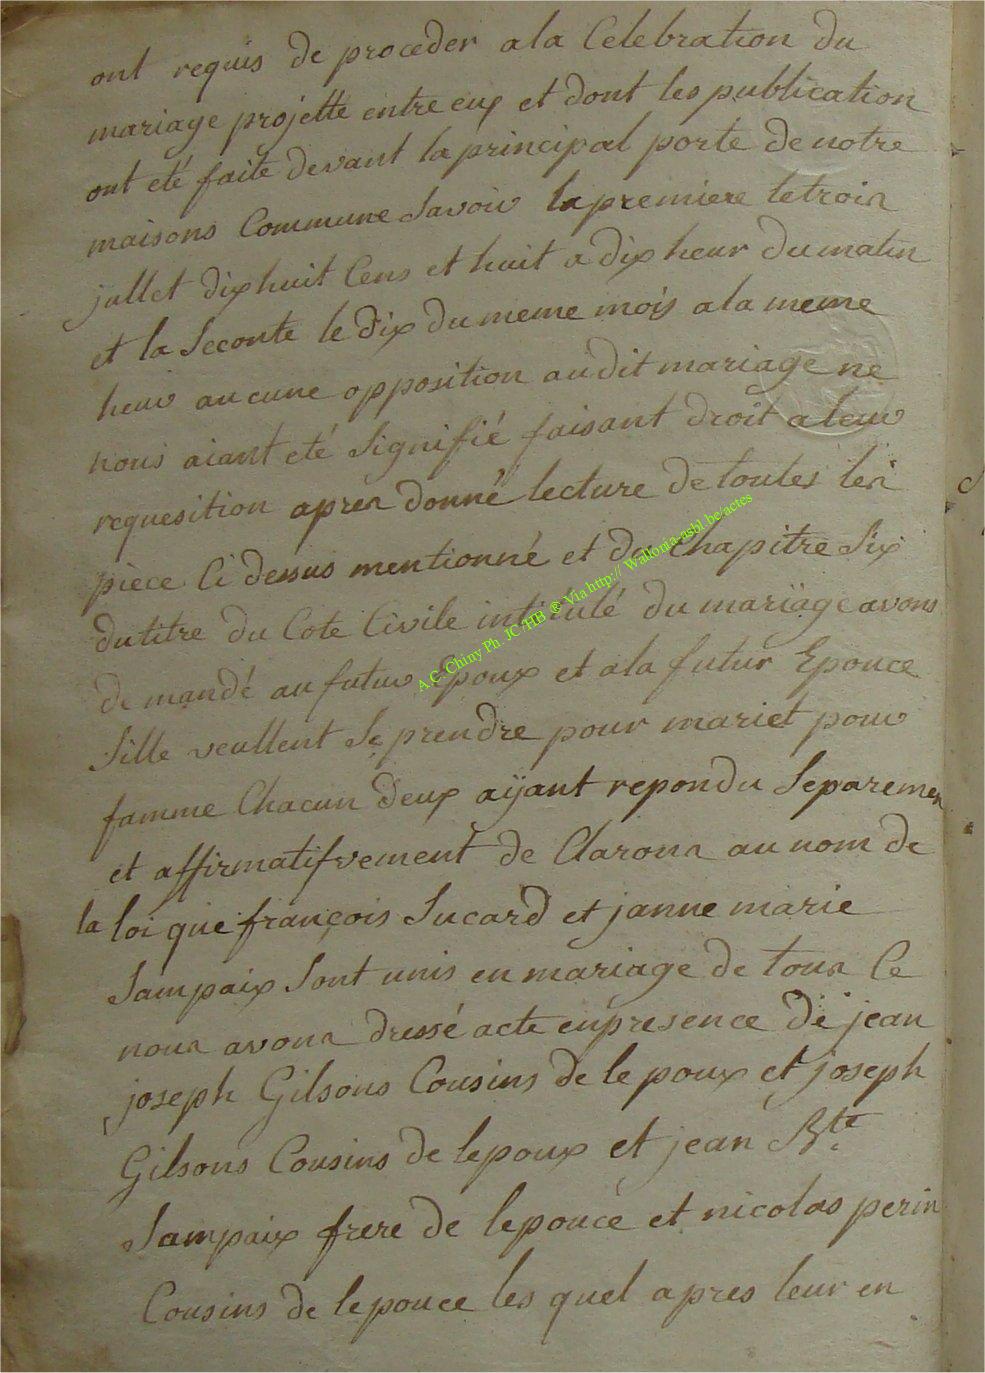 ont requis de proceder ala Celebration du
mariage projette entre eux et dont les publication
ont eté faite devant la principal porte de notre
maisons Commune Savoir la premiere le trois
jullet dixhuit Cens et huit a dix heur du matin
et la Seconte le dix du meme mois ala meme
heur aucune opposition au dit mariage ne
nous aiant eté Signifié faisant droit a leur
requesition apres donné lecture de toutes les
piece Ci dessus mentionné et du Chapitre Six
du titre du Cote Civile intitulé du mariäge avons
de mandé au futur Epoux et ala futur Epouce
Sille veullent Se prendre pour mariet pour
famme Chacun deux aÿant repondu Separemen
et affirmatifvement de Clarons au nom de
la loi que françois Sucard et janne marie
Sampaix Sont unis en mariage de tous Ce
nous avons dressé acte enpresence de jean
joseph Gilsons Cousins de le poux et joseph
Gilsons Cousins de lepoux et jean Bte
Sampaix frere de lepouce et nicolas perin
Cousins de lepouce les quel apres leur en
A.C. Chiny Ph. JC/HB ® Via http:// Wallonia-asbl.be/actes